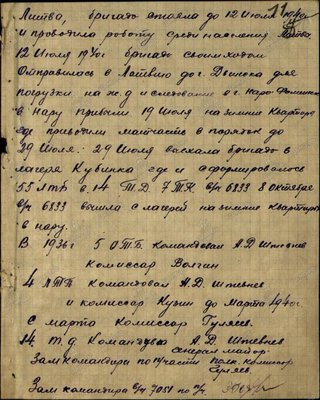 11
Литва, бригада стояла до 12 Июля 1940г
и проводила работу среди населения Литвы.
12 Июля 40г бригада своим ходом
отправилась в Латвию до г. Двинска для
погрузки на ж.д и следование в г. Наро-Фоминск
в нару прибыли 19 Июля на зимние квартиры
где приводили матчасть в порядок до
29 Июля: 29 Июля выехала бригада в
лагеря Кубинка где и сформировалось
55 ЛТП в 14 Т.Д. 7 МК в/ч 6833 8 Октября
в/ч 6833 вышла с лагерей на зимние квартиры
в нару.
В 1936г 5 ОТБ. Командовал А.Д Штевнев
Комиссар Волгин
4 ЛТП Командовал А.Д Штевнев
и комиссар Кузин до марта 1940г.
С марта Комиссар Гуляев.
14 т.д. Командовал А.Д. Штевнев
генерал майор.
Зам командира по п/части Полк. Комиссар
Гуляев.
Зам командира в/ч 7051 по п/ч